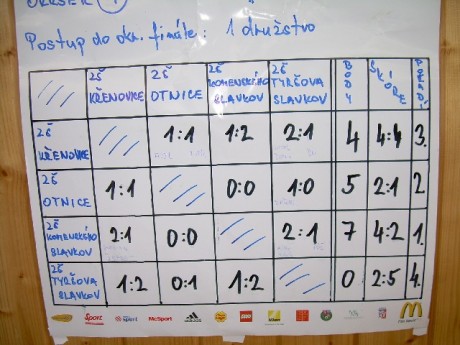 Postup do okr. finále: 1 družstvo
ZŠ KŘENOVICE ZŠ OTNICE ZŠ KOMENSKÉHO SLAVKOV ZŠ TYRŠOVA SLAVKOV BODY SKÓRE POŘADÍ
ZŠ KŘENOVICE 1:1 1:2 2:1 4 4:4 3.
ZŠ OTNICE 1:1 0:0 1:0 5 2:1 2
ZŠ KOMENSKÉHO SLAVKOV 2:1 0:0 2:1 7 4:2 1.
ZŠ TYRŠOVA SLAVKOV 1:2 0:1 1:2 0 2:5 4.